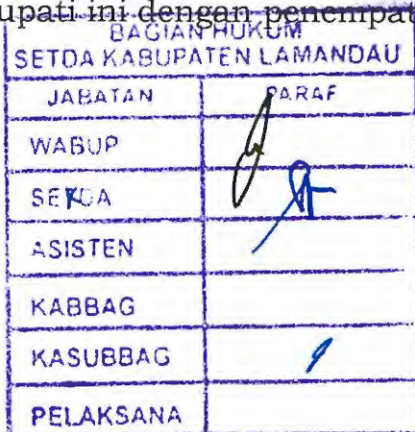 upati ini dengan penempat
BAGIAN HUKUM
SETDA KABUPATEN LAMANDAU
JABATAN PARAF
WABUP
SEKDA
ASISTEN
KABBAG
KASUBBAG
PELAKSANA